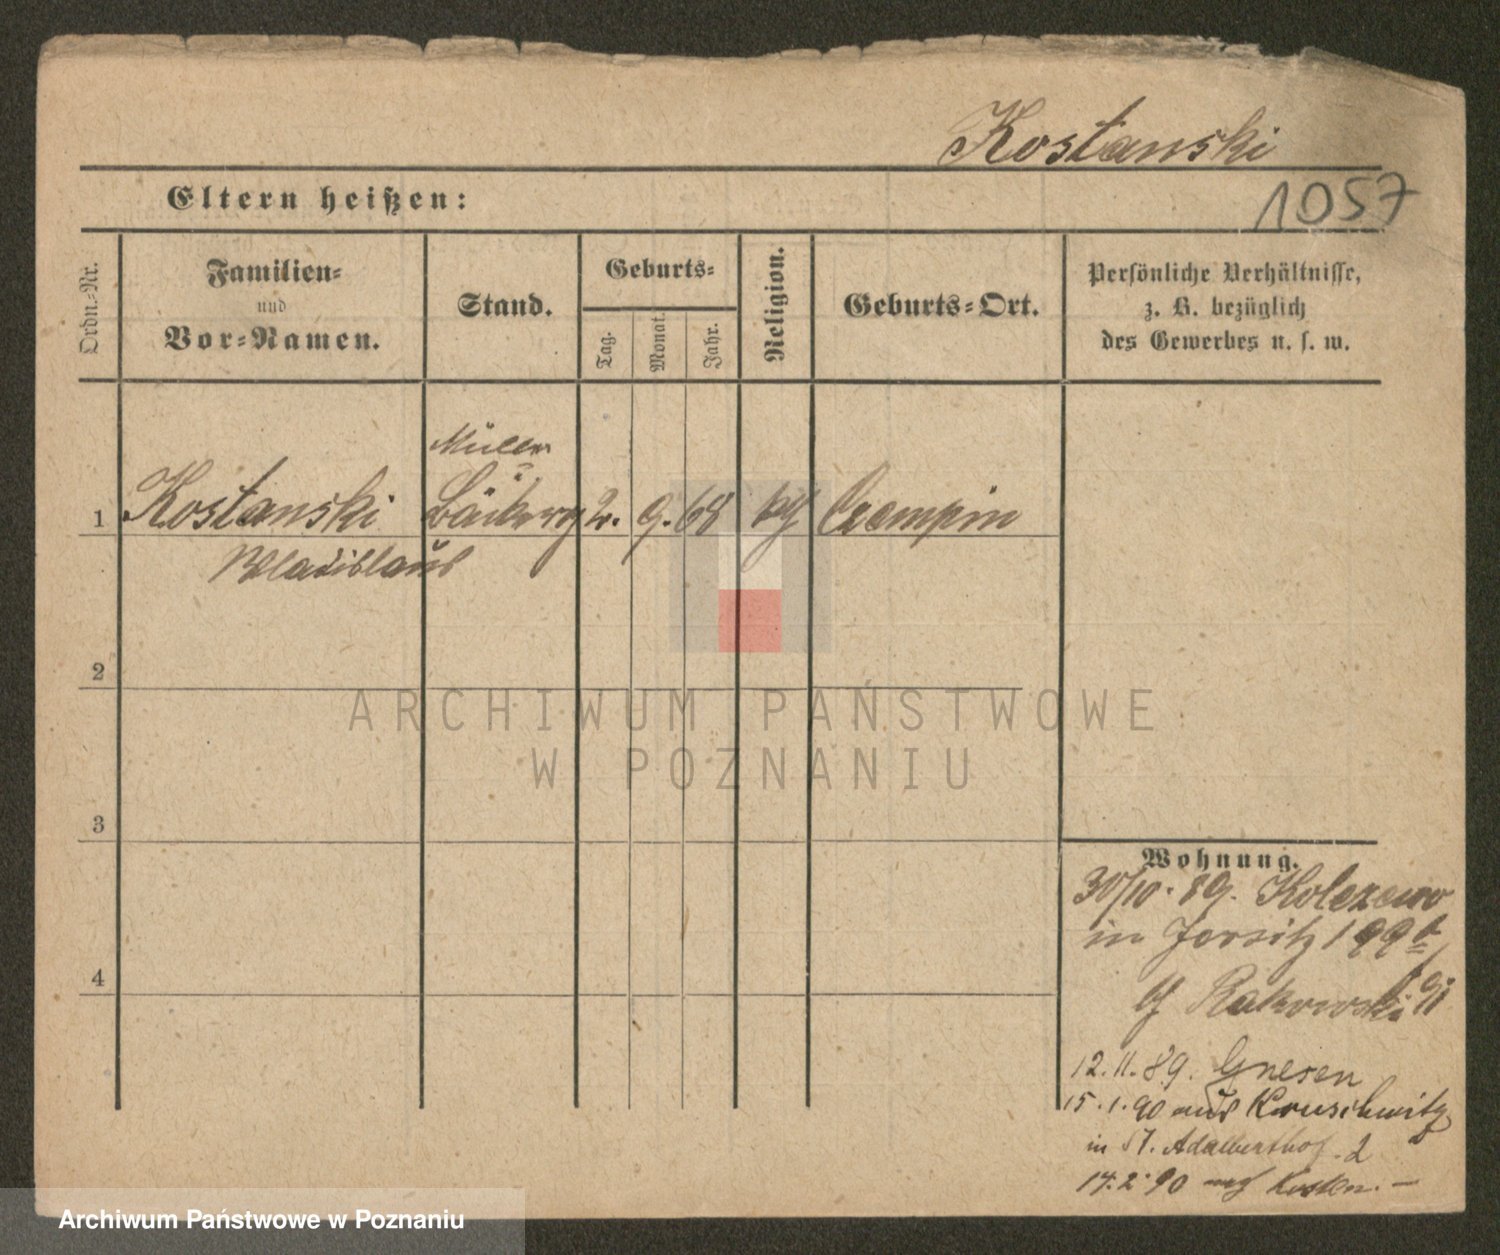 Kostanski
Eltern heißen:
1057
Ordn.-Nr.
Familien-
und
Vor-Namen.
Stand.
Geburts-
Tag.
Monat.
Jahr.
Religion.
Geburts-Ort.
Persönliche Verhältnisse,
z. B. bezüglich
des Gewerbes u. s. w.
Müller
1 Kostanski 2. 9. 68 Czempin
Wladislaus
2
ARCHIWUM PAŃSTWOWE
W POZNANIU
3
4
Wohnung.
30/10. 89. Kolezewo
in Jersitz 199
Rakowski
12.11.89. Gnesen
15.1.90 aus Kruschwitz
in St. Adalberthof. 2
14.2.90 Kosten.
Archiwum Państwowe w Poznaniu